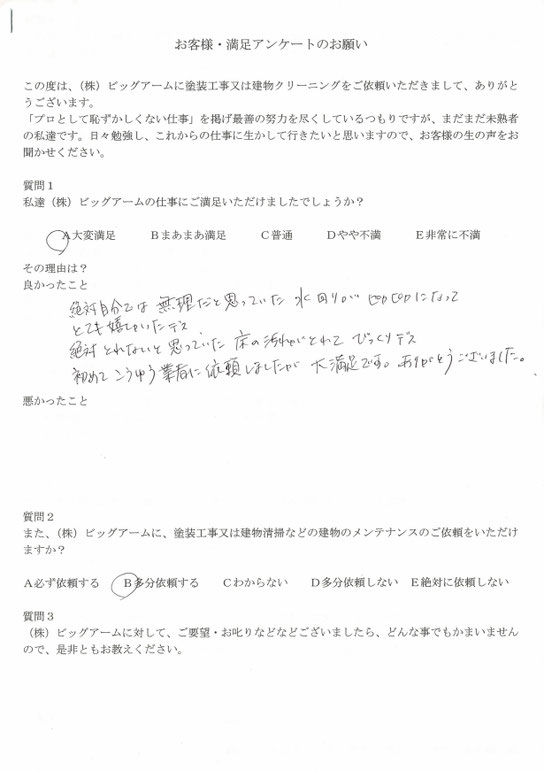 お客様・満足アンケートのお願い
この度は、（株）ビッグアームに塗装工事又は建物クリーニングをご依頼いただきまして、ありがと
うございます。
「プロとして恥ずかしくない仕事」を掲げ最善の努力を尽くしているつもりですが、まだまだ未熟者
の私達です。日々勉強し、これからの仕事に生かして行きたいと思いますので、お客様の生の声をお
聞かせください。
質問１
私達（株）ビッグアームの仕事にご満足いただけましたでしょうか？
Ａ大変満足 Ｂまあまあ満足 Ｃ普通 Ｄやや不満 Ｅ非常に不満
その理由は？
良かったこと
絶対自分では無理だと思っていた水回りがピカピカになって
とても嬉しかったデス
絶対とれないと思っていた床の汚れがとれてびっくりデス
初めてこうゆう業者に依頼しましたが大満足です。ありがとうございました。
悪かったこと
質問２
また、（株）ビッグアームに、塗装工事又は建物清掃などの建物のメンテナンスのご依頼をいただけ
ますか？
Ａ必ず依頼する Ｂ多分依頼する Ｃわからない Ｄ多分依頼しない Ｅ絶対に依頼しない
質問３
（株）ビッグアームに対して、ご要望・お叱りなどなどございましたら、どんな事でもかまいません
ので、是非ともお教えください。